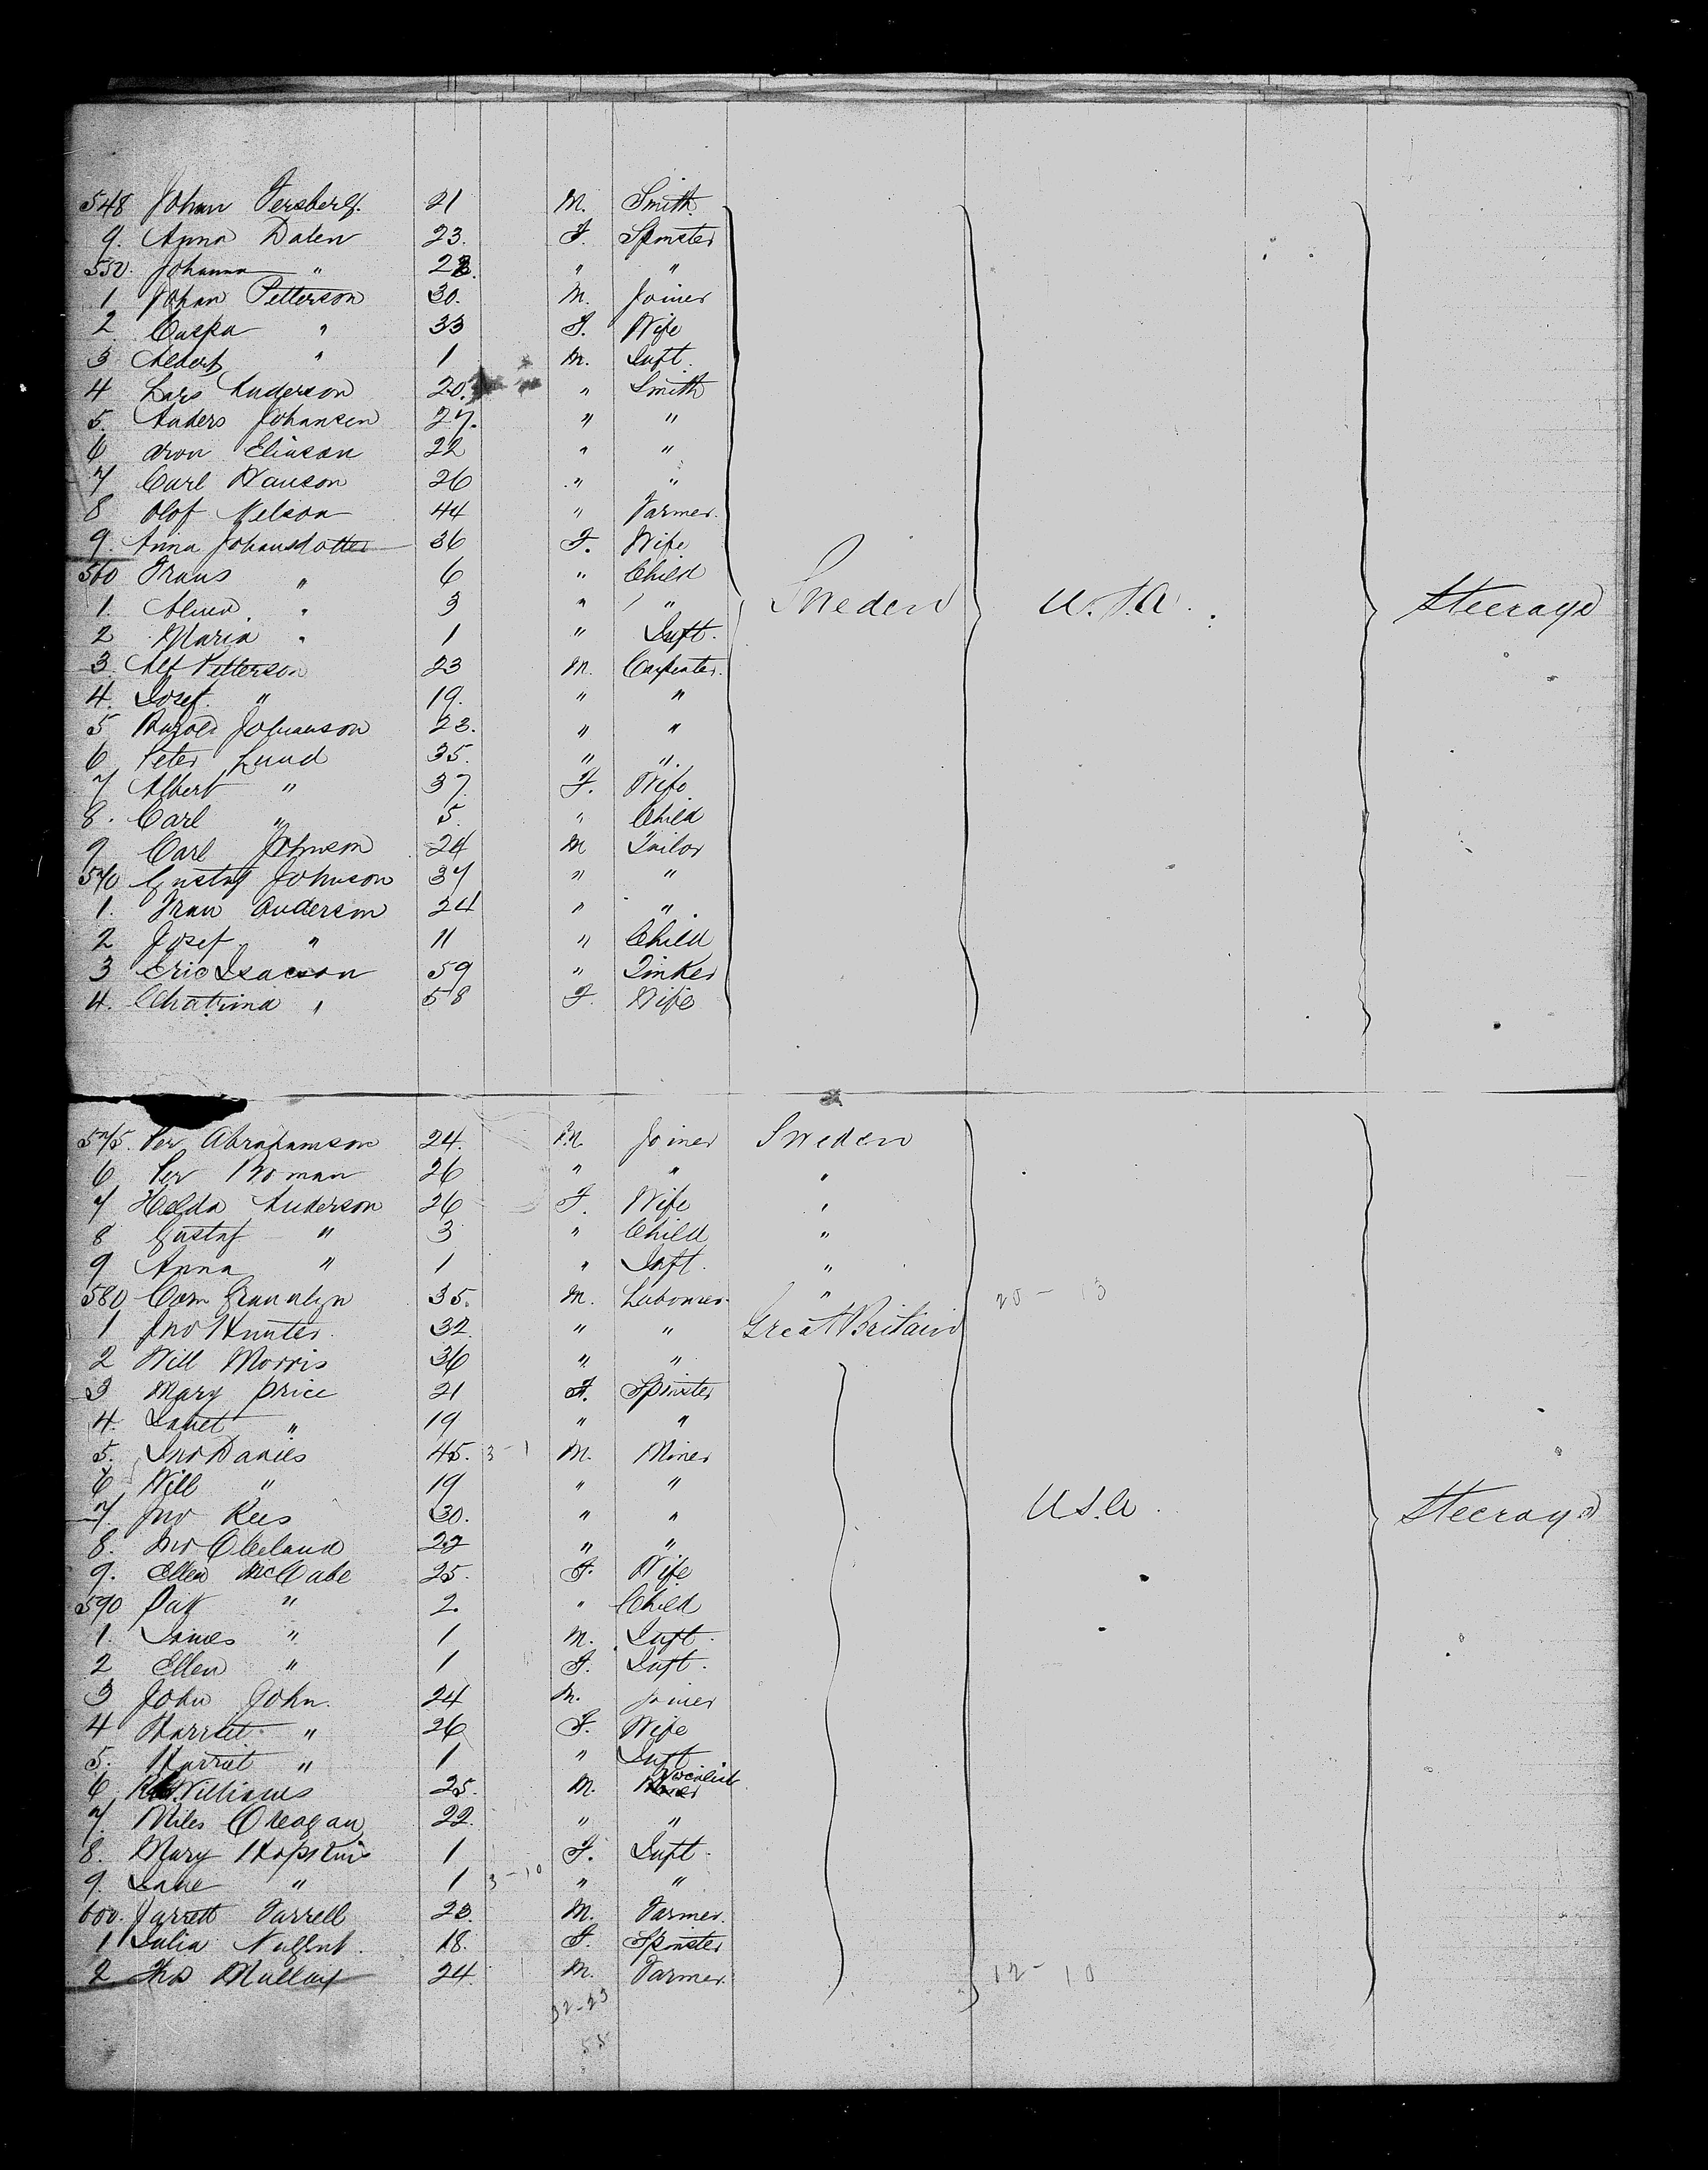 548 Johan Fersberg. 21 M. Smith.
9. Anna Dalen 23. F. Spinster
550. Johanna " " "
1 Johan Petterson 30. M. Joiner
2. " 33 F. Wife
3 Albert " 1 M. Inft.
4 Lars Anderson 20. " Smith
5. Anders Johansen 27. " "
6 Aron Eliason 22 " "
7 Carl Hanson 26 " "
8 Olof Nelson 44 " Farmer.
9. Anna Johansdotter 36 F. Wife
560 Frans " 6 " Child
1. " 3 " " Sweden U.S.A. Steerage
2 Maria " 1 " Inft.
3. Alf Petterson 23 M. Carpenter.
4. Josef. " 19. " "
5 Harold Johanson 23. " "
6 Peter Lund 35. " "
7 Albert " 37. F. Wife
8. Carl " 5. " Child
9 Carl Johnson 24 M Tailor
570 Gustaf Johnson 37 " "
1. Fran Anderson 24 " "
2 Josef " 11 " Child
3 Eric Isacson 59 " Tinker
4. " 58 F. Wife
575. Per Abrahamson 24. M Joiner Sweden
6 Per Boman 26 " " "
7 Helda Anderson 26 F. Wife "
8 Gustaf " 3 " Child "
9 Anna " 1 " Inft. "
580 35. M. Labourer " 20 - 13
1 Jno Hunter. 32. " " Great Britain
2 Will Morris 36 " "
3 Mary Price 21 F. Spinster
4. Janet " 19 " "
5. Jno Davies 45. 3 - 1 M. Miner
6 Will " 19 " "
7. Jno Rees 30. " " U.S.A. Steerage
8. Jno Cleland 22 " "
9. Ellen McCabe 25. F. Wife
590 Pat " 2. " Child
1. James " 1 M. Inft.
2 Ellen " 1 F. Inft.
3 John John. 24 M. Joiner
4 Harriet " 26 F. Wife
5. Harriet " 1 " Inft
6 Williams 25. M. Vocalist
7. Miles 22. " "
8. Mary Hopkins 1 F. Inft.
9. Jane " 1 3 - 10 " "
600. Jarrett Farrell 23. M. Farmer.
1 Julia Nugent. 18. F. Spinster
2 Thos Mullay 24 M. Farmer. 12 - 10
32 - 23
55